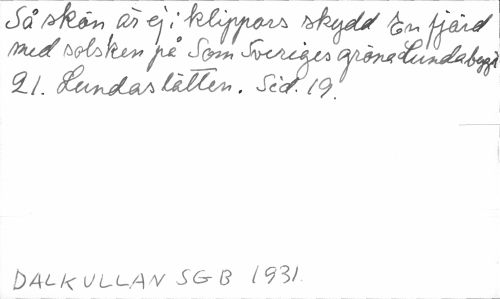 Så skön är ej i klippors skydd En fjärd
med solsken på Som Sveriges gröna Lundabygd
21. Lundaslätten. Sid. 19.
DALKULLAN SGB 1931.